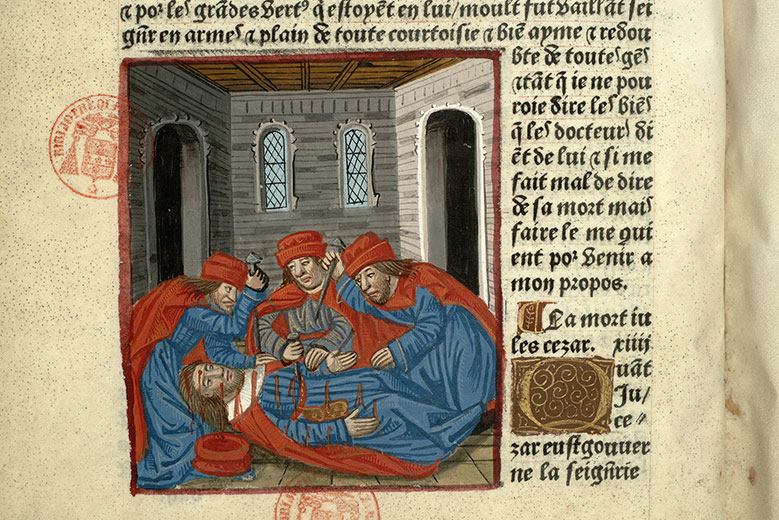 ⁊ por les grandes vertꝰ q̃ estoyẽt en lui / moult fut vaillãt sei
gñr en armes ⁊ plain de toute courtoisie ⁊ biẽ ayme ⁊ redou
bte de toutes gẽs
⁊ tãt q̃ ie ne pou
roie dire les biẽs
q̃ les docteurs di
ẽt de lui ⁊ si me
fait mal de dire
de sa mort mais
faire le me qui
ent por venir a
mon propos.
De la mort iu
les cezar. xiiij
Quãt
Ju/
ce-
zar eust gouuer
ne la seigñrie